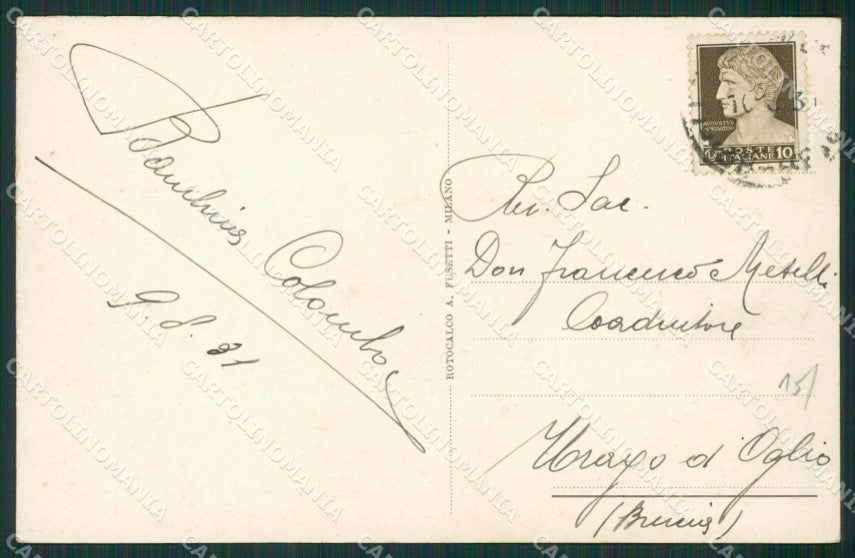 Colombo
9.8.31
ROTOCALCO A. FUSETTI - MILANO
AVGVSTVS
IMPERATOR
POSTE 10
ITALIANE
Rev. Sac.
Don Francesco Metelli
Coadiutore
15/
Urago d'Oglio
(Brescia)
CARTOLINOMANIA